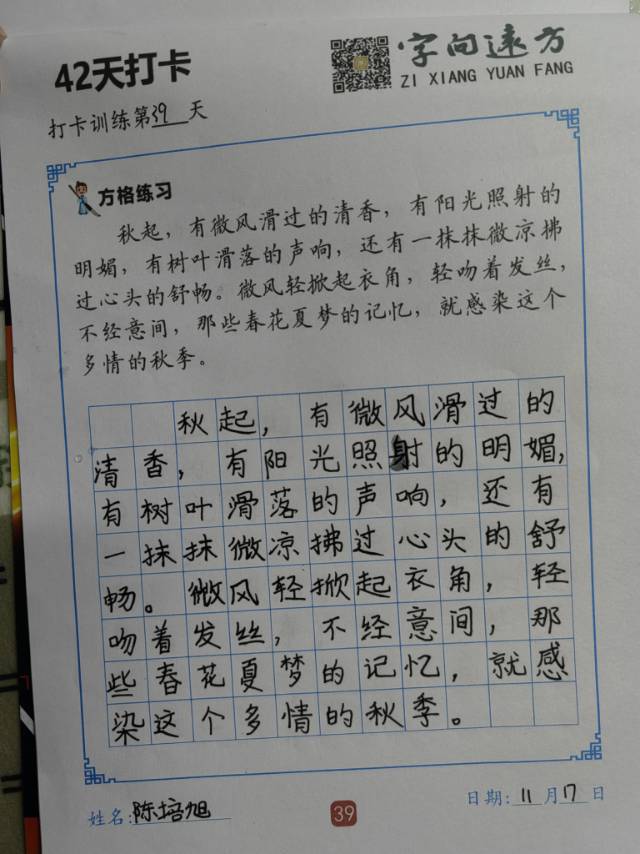 42天打卡
字向远方
ZI XIANG YUAN FANG
打卡训练第39天
方格练习
秋起，有微风滑过的清香，有阳光照射的
明媚，有树叶滑落的声响，还有一抹抹微凉拂
过心头的舒畅。微风轻掀起衣角，轻吻着发丝，
不经意间，那些春花夏梦的记忆，就感染这个
多情的秋季。
秋起，有微风滑过的
清香，有阳光照射的明媚，
有树叶滑落的声响，还有
一抹抹微凉拂过心头的舒
畅。微风轻掀起衣角，轻
吻着发丝，不经意间，那
些春花夏梦的记忆，就感
染这个多情的秋季。
姓名：陈培旭
39
日期：11月17日